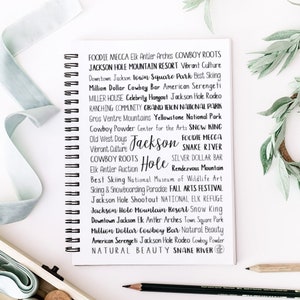 FOODIE MECCA Elk Antler Arches COWBOY ROOTS
JACKSON HOLE MOUNTAIN RESORT Vibrant Culture
Downtown Jackson Town Square Park Best Skiing
Million Dollar Cowboy Bar American Serengeti
MILLER HOUSE Celebrity Hangout Jackson Hole Rodeo
RANCHING COMMUNITY GRAND TETON NATIONAL PARK
Gros Ventre Mountains Yellowstone National Park
Cowboy Powder Center for the Arts SNOW KING
Old West Days Jackson FOODIE MECCA
Vibrant Culture SNAKE RIVER
COWBOY ROOTS Hole SILVER DOLLAR BAR
Elk Antler Auction Rendezvous Mountain
Best Skiing National Museum of Wildlife Art
Skiing & Snowboarding Paradise FALL ARTS FESTIVAL
Jackson Hole Shootout NATIONAL ELK REFUGE
Jackson Hole Mountain Resort Snow King
Downtown Jackson Elk Antler Arches Town Square Park
Million Dollar Cowboy Bar Natural Beauty
American Serengeti Jackson Hole Rodeo Cowboy Powder
NATURAL BEAUTY SNAKE RIVER